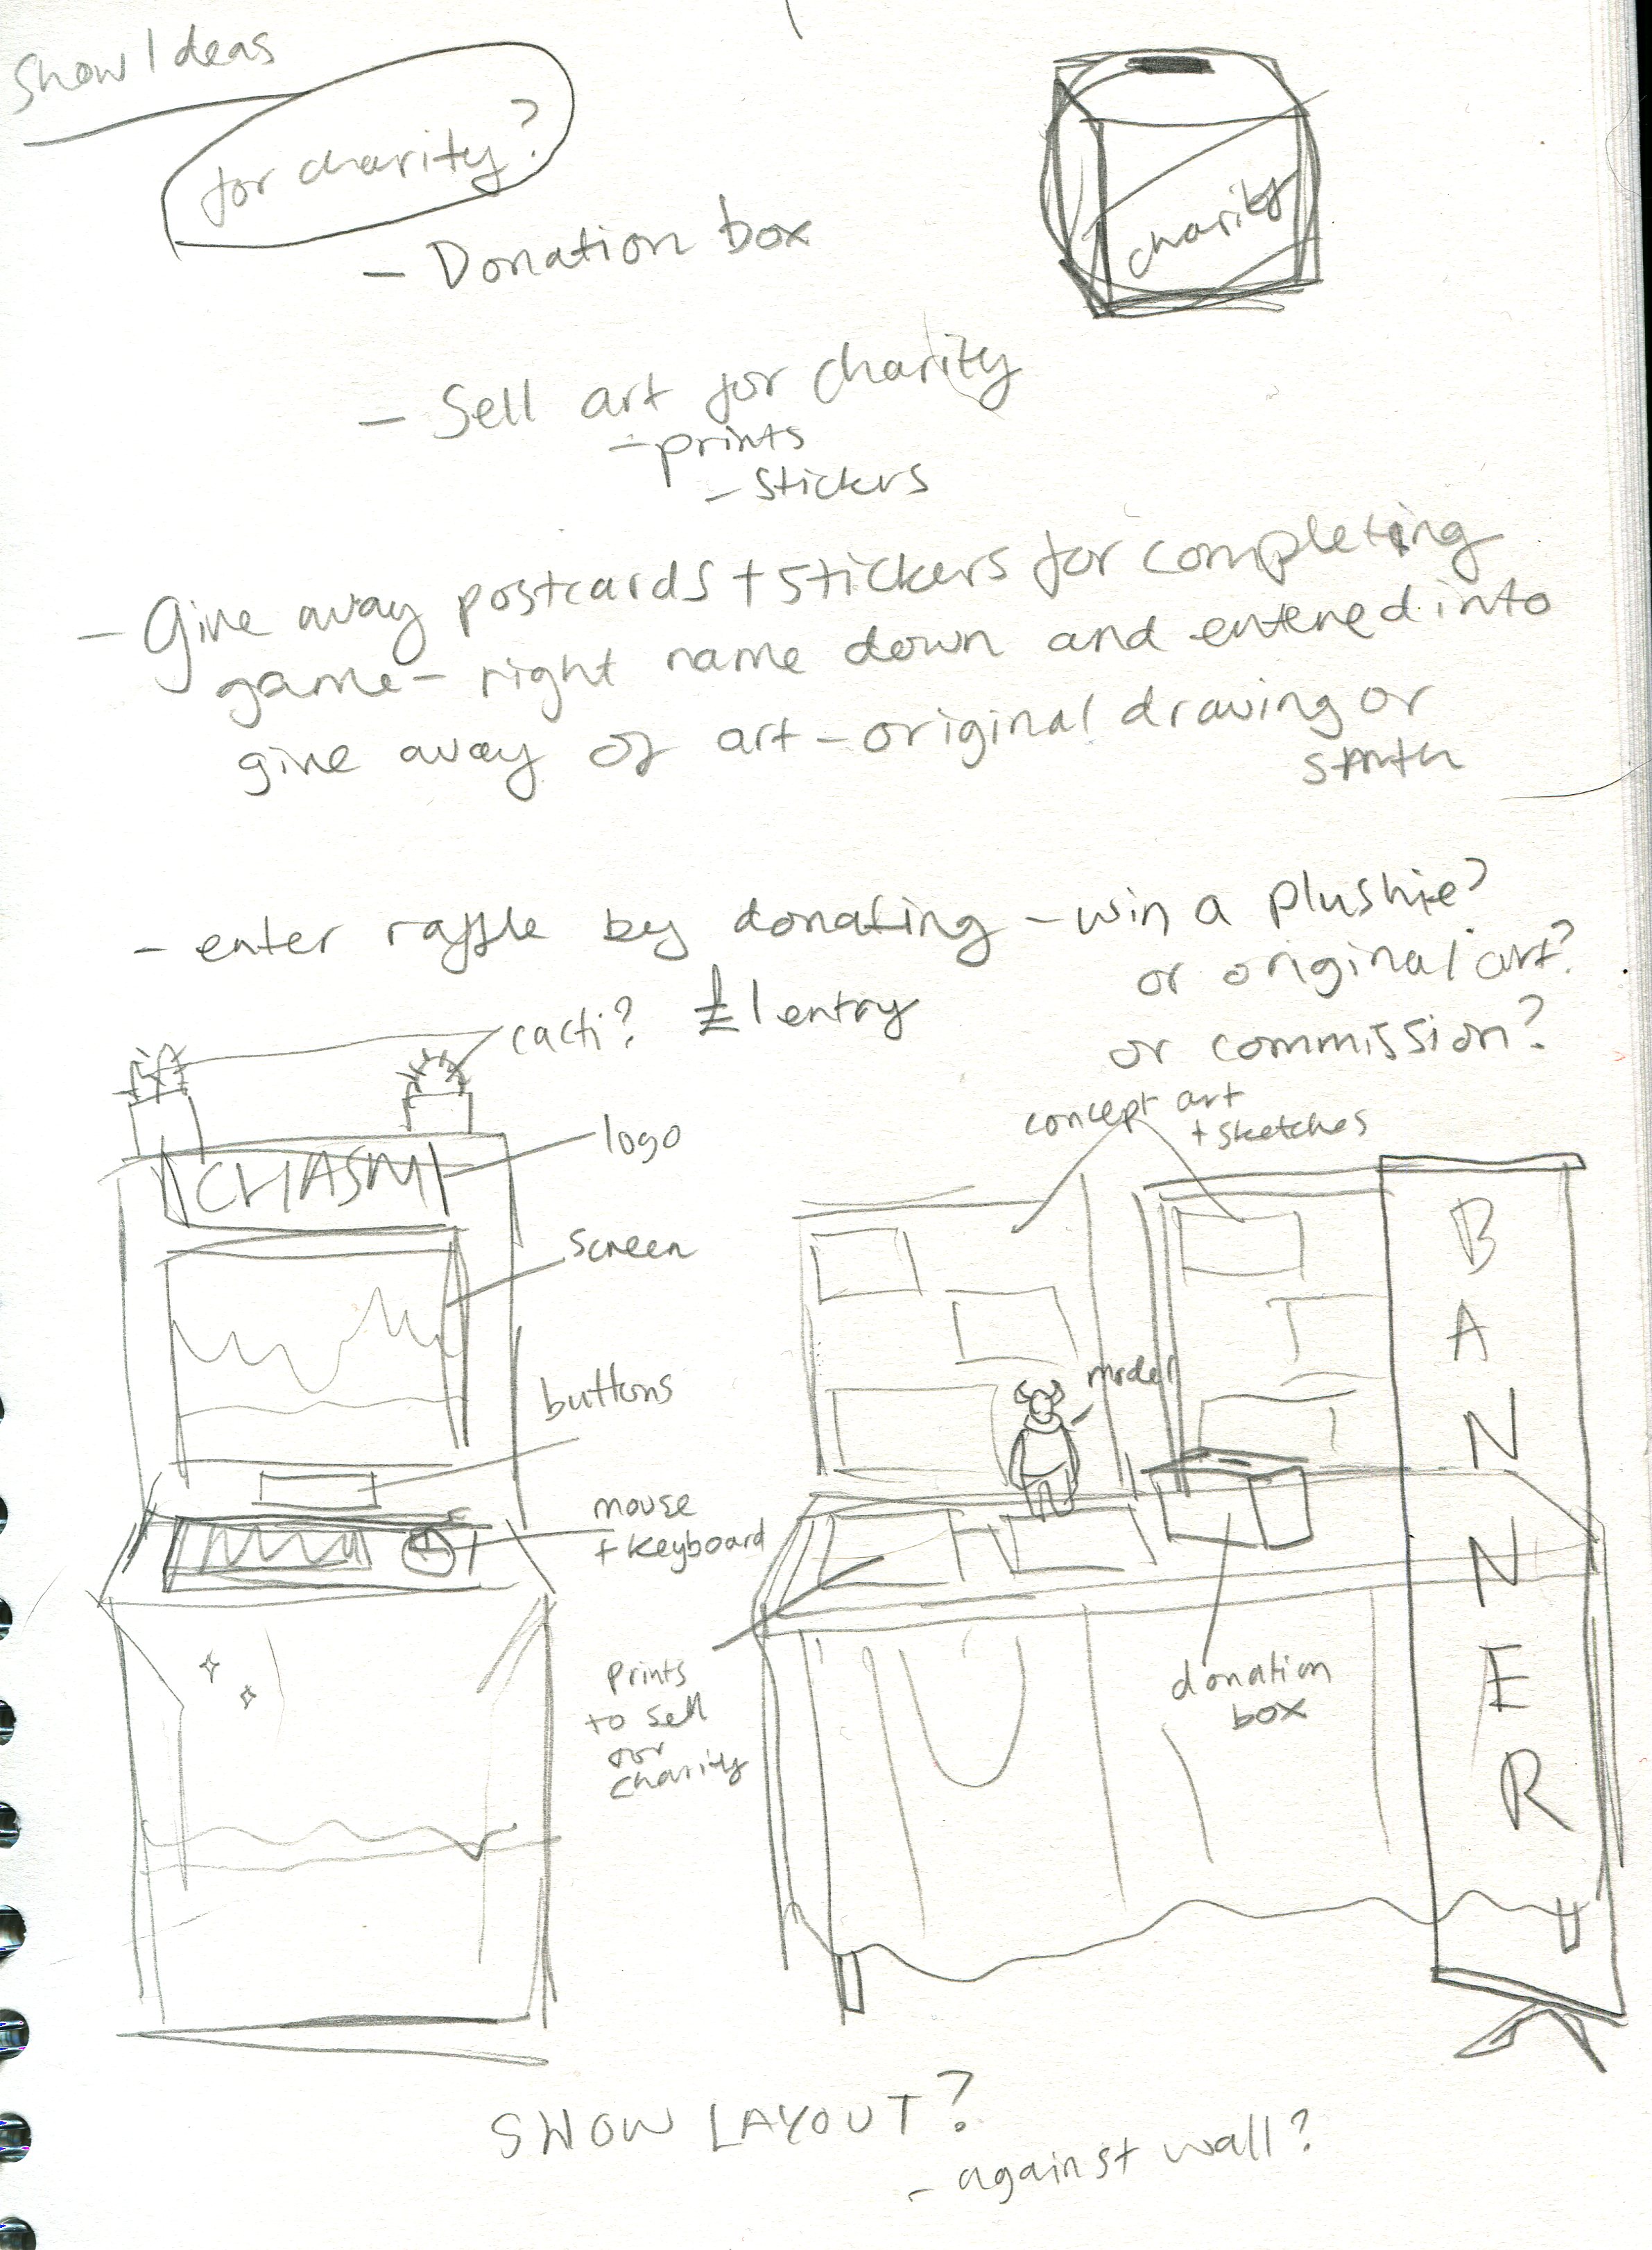 Show Ideas
for charity?
- Donation box
charity
- Sell art for charity
- prints
- stickers
- Give away postcards + stickers for completing
game - right name down and entered into
give away of art - original drawing or
smth
- enter raffle by donating - win a plushie?
or original art?
or commission?
£1 entry
cacti?
logo
CHASM
screen
buttons
mouse
+ keyboard
concept art
+ sketches
model
BANNER
prints
to sell
for
charity
donation
box
SHOW LAYOUT?
- against wall?